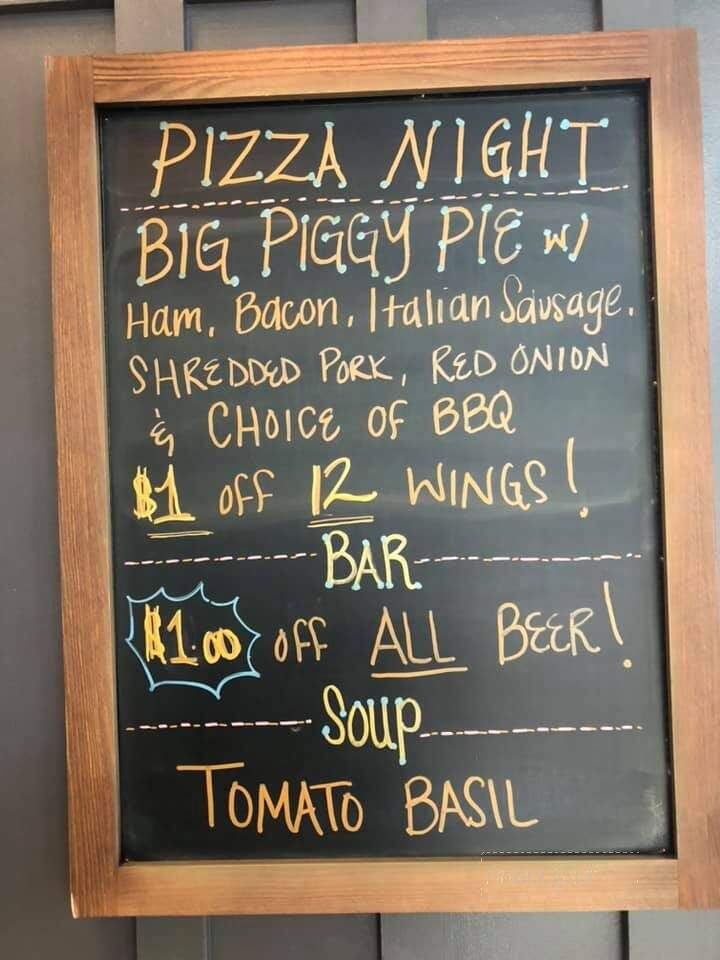 PIZZA NIGHT
BIG PIGGY PIE w/
Ham, Bacon, Italian Sausage,
SHREDDED PORK, RED ONION
& CHOICE OF BBQ
$1 OFF 12 WINGS!
BAR
$1.00 OFF ALL BEER!
Soup
TOMATO BASIL